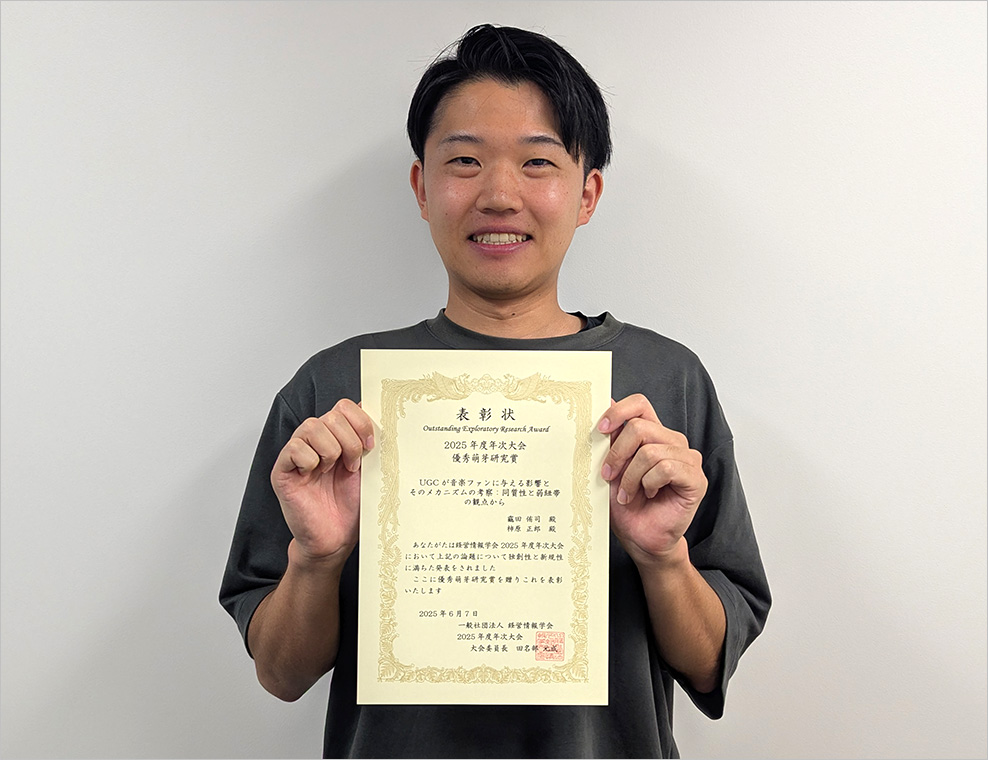 表彰状
Outstanding Exploratory Research Award
2025年度年次大会
優秀萌芽研究賞
UGCが音楽ファンに与える影響と
そのメカニズムの考察：同質性と弱紐帯
の観点から
竈田 侑司 殿
柿原 正郎 殿
あなたがたは経営情報学会2025年度年次大会
において上記の論題について独創性と新規性
に満ちた発表をされました
ここに優秀萌芽研究賞を贈りこれを表彰
いたします
2025年6月7日
一般社団法人 経営情報学会
2025年度年次大会
大会委員長 田名部 元成